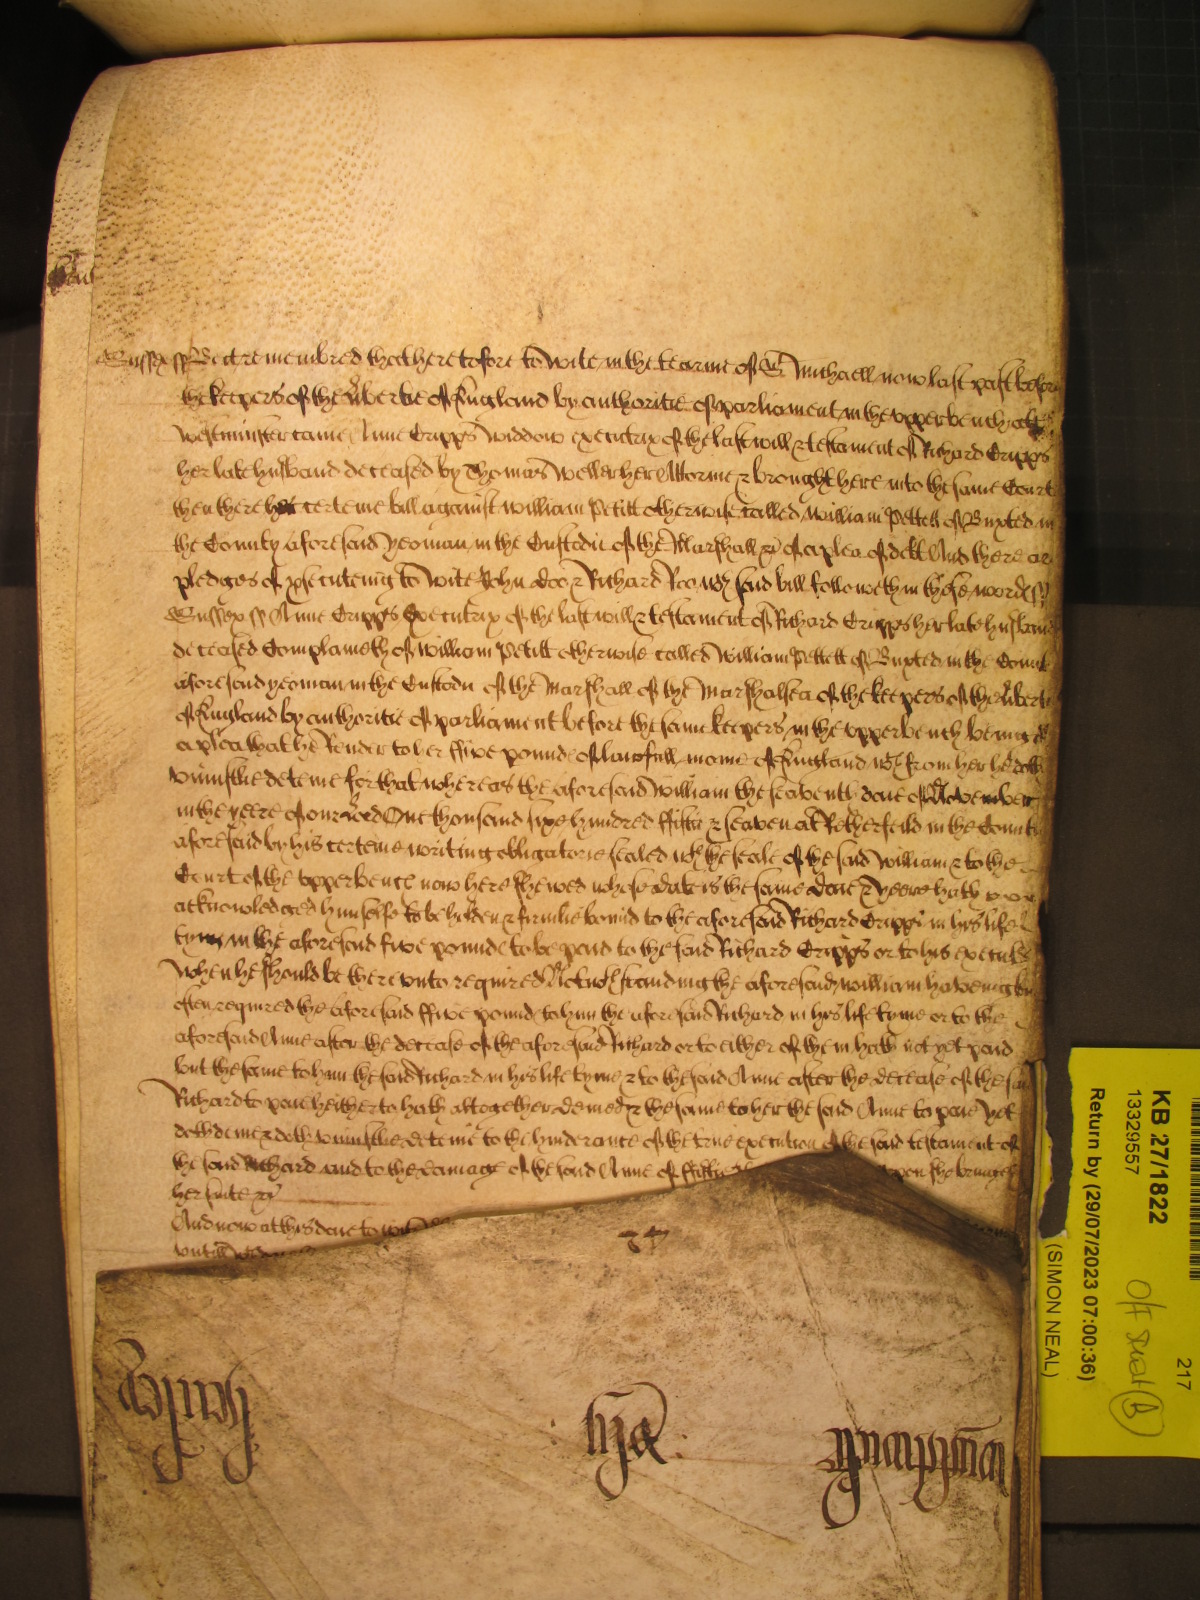 Sussex ss Bee it remembred that heretofore to wite in the tearme of St Michaell now last past before
the keepers of the libertie of England by authoritie of parliament in the upper bench att
Westminster came Anne Cripps widdow executrix of the last will & testament of Richard Cripps
her late husband deceased by Thomas Weller her Attorne & brought here into the same Court
then there her certeine bill against William Petitt otherwise called William Pettett of Buxted in
the County aforesaid yeoman in the Custodie of the Marshall &c of a plea of debt And there are
pledges of psecuteing to wite John Doo & Richard Roo wch said bill followeth in these wordes ss
Sussex ss Anne Cripps Executrix of the last will & testament of Richard Cripps her late husband
deceased Complaineth of William Petitt otherwise called William Pettett of Buxted in the Count
aforesaid yeoman in the Custodie of the Marshall of the Marshalsea of the keepers of the libertie
of England by authoritie of parliament before the same keepers in the upper bench being of
a plea that he Render to her ffive pounds of lawfull monie of England wch from her he doth
uniustlie deteine for that whereas the aforesaid William the seaventh daie of November
in the yeere of our Lord One thousand sixe hundred ffiftie & seaven at Retherfeild in the County
aforesaid by his certeine writing obligatorie sealed wth the seale of the said William & to the
Court of the upper bench now here shewed whose date is the same daie & yeere hath
acknowledged himselfe to be holden & firmlie bound to the aforesaid Richard Cripps in his life
tyme in the aforesaid five pounds to be paid to the said Richard Cripps or to his executors
when he should be thereunto required Notwthstanding the aforesaid William haveing been
often required the aforesaid ffive pounds to him the aforesaid Richard in his life tyme or to the
aforesaid Anne after the decease of the aforesaid Richard or to either of them hath not yet paid
but the same to him the said Richard in his life tyme & to the said Anne after the decease of the said
Richard to paie heitherto hath altogether denied & the same to her the said Anne to paie yet
doth denie & doth uniustlie deteine to the hinderance of the true execution of the said testament of
the said Richard and to the damage of the said Anne of fiftie upon she bringeth
her suite &c
And now at this daie to wit
untill
Return by (29/07/2023 07:00:36)
(SIMON NEAL)
KB 27/1822
13329557
217